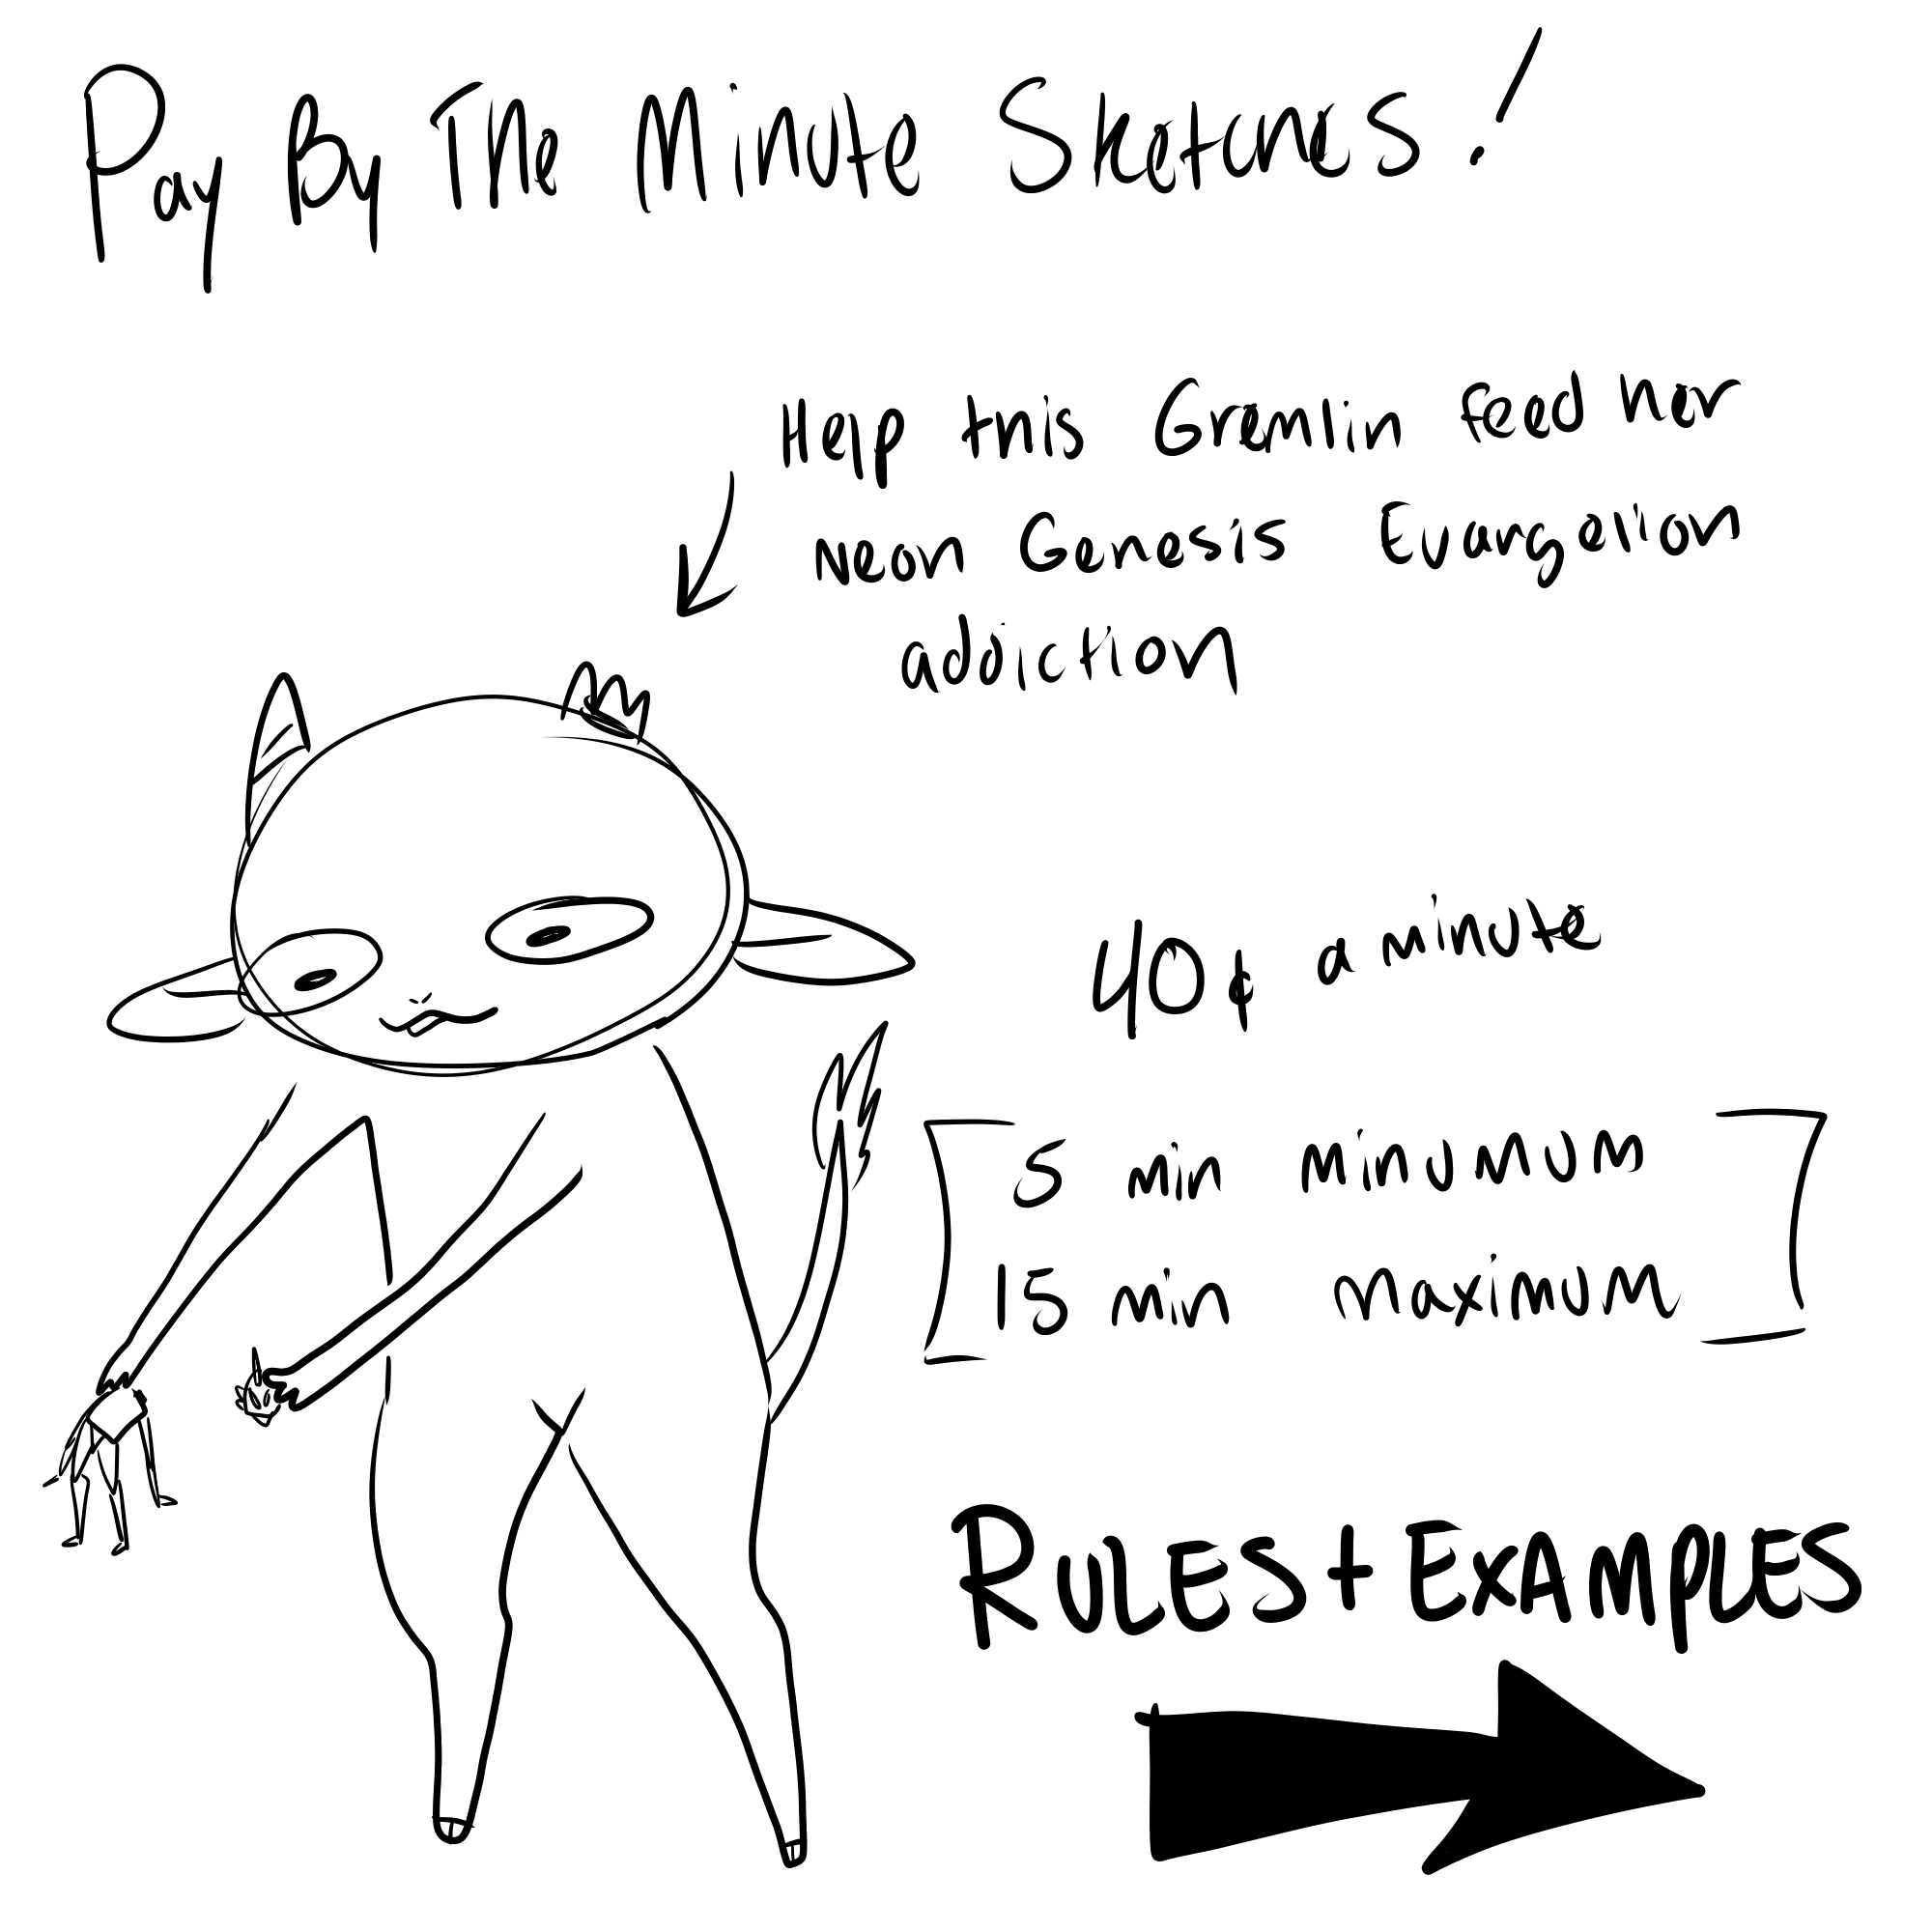 Pay By The Minute Sketches!
Help this Gremlin feed her
Neon Genesis Evangelion
addiction
40¢ a minute
5 min minumum
15 min maximum
RULES + EXAMPLES